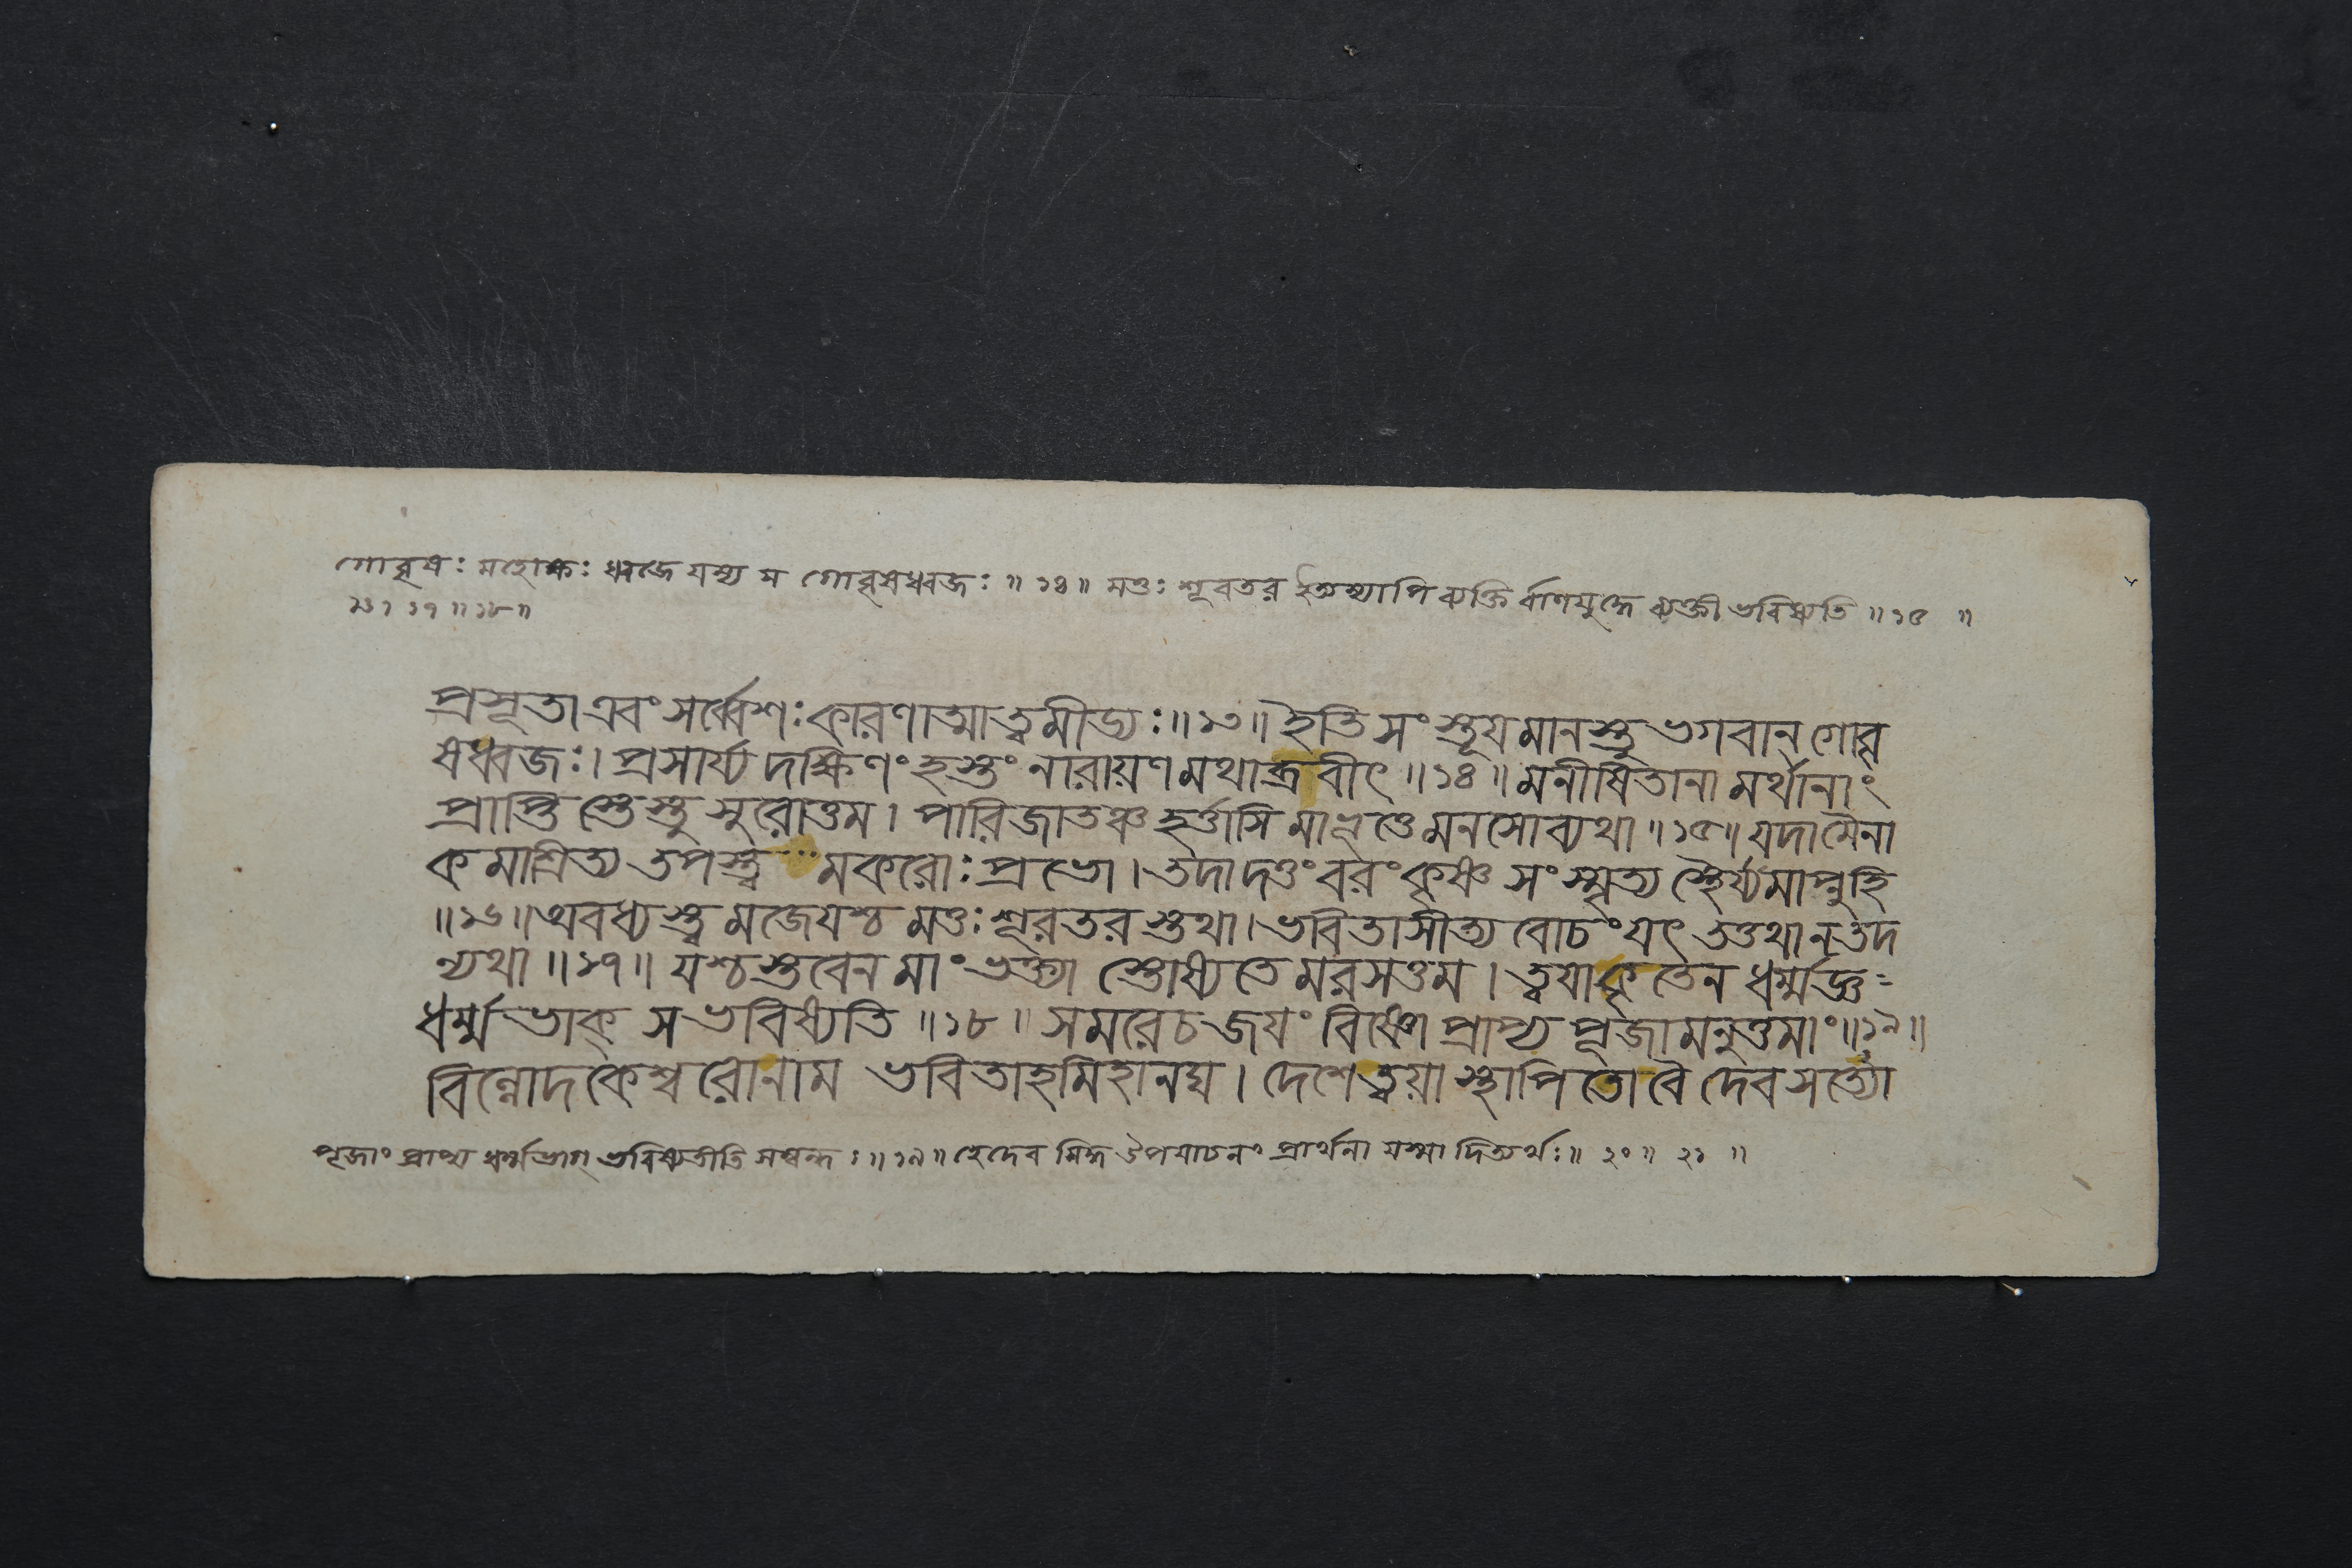 গোবৃষঃ মহোক্ষঃ ধ্বজে যস্য স গোবৃষধ্বজঃ ॥ ১৪ ॥ মত্তঃ শূরতর ইত্যস্যাপি ব্যক্তির্বাণযুদ্ধে ব্যক্তী ভবিষ্যতি ॥ ১৫ ॥
১৬ । ১৭ ॥ ১৮ ॥
প্রসূতা এবং সর্ব্বেশঃ কারণাত্মাত্বমীড্যঃ ॥ ১৩ ॥ ইতি সংস্তূযমানস্তু ভগবান্ গোবৃ
ষধ্বজঃ । প্রসার্য্য দক্ষিণং হস্তং নারায়ণমথাব্রবীৎ ॥ ১৪ ॥ মনীষিতানামর্থানাং
প্রাপ্তিস্তেস্তু সুরোত্তম । পারিজাতঞ্চ হর্ত্তাসি মাভূত্তে মনসোব্যথা ॥ ১৫ ॥ যদামৈনা
কমাশ্রিত্য তপস্ত্ব মকরোঃ প্রভো । তদাদত্তং বরং কৃষ্ণ সংস্মৃত্য স্থৈর্য্যমাপ্নুহি
॥ ১৬ ॥ অবধ্যস্ত্বমজেযশ্চ মত্তঃ শূরতরস্তথা । ভবিতাসীত্যবোচং যৎ তত্তথা নতদ
ন্যথা ॥ ১৭ ॥ যশ্চ স্তবেন মাং ভক্ত্যা স্তোষ্যতে মরসত্তম । ত্বযাকৃতেন ধর্ম্মজ্ঞ
ধর্ম্মভাক্ সভবিষ্যতি ॥ ১৮ ॥ সমরেচ জযং বিষ্ণো প্রাপ্য পূজামনুত্তমাং ॥ ১৯ ॥
বিল্বোদকেশ্বরোনাম ভবিতাহমিহানঘ । দেশেত্বয়া স্থাপিতোবৈ দেব সত্যো
পূজাং প্রাপ্য ধর্ম্মভাগ্ ভবিষ্যতীতি সম্বন্ধঃ ॥ ১৯ ॥ হেদেব সিদ্ধ উপযাচনং প্রার্থনা যস্মাদিত্যর্থঃ ॥ ২০ ॥ ২১ ॥